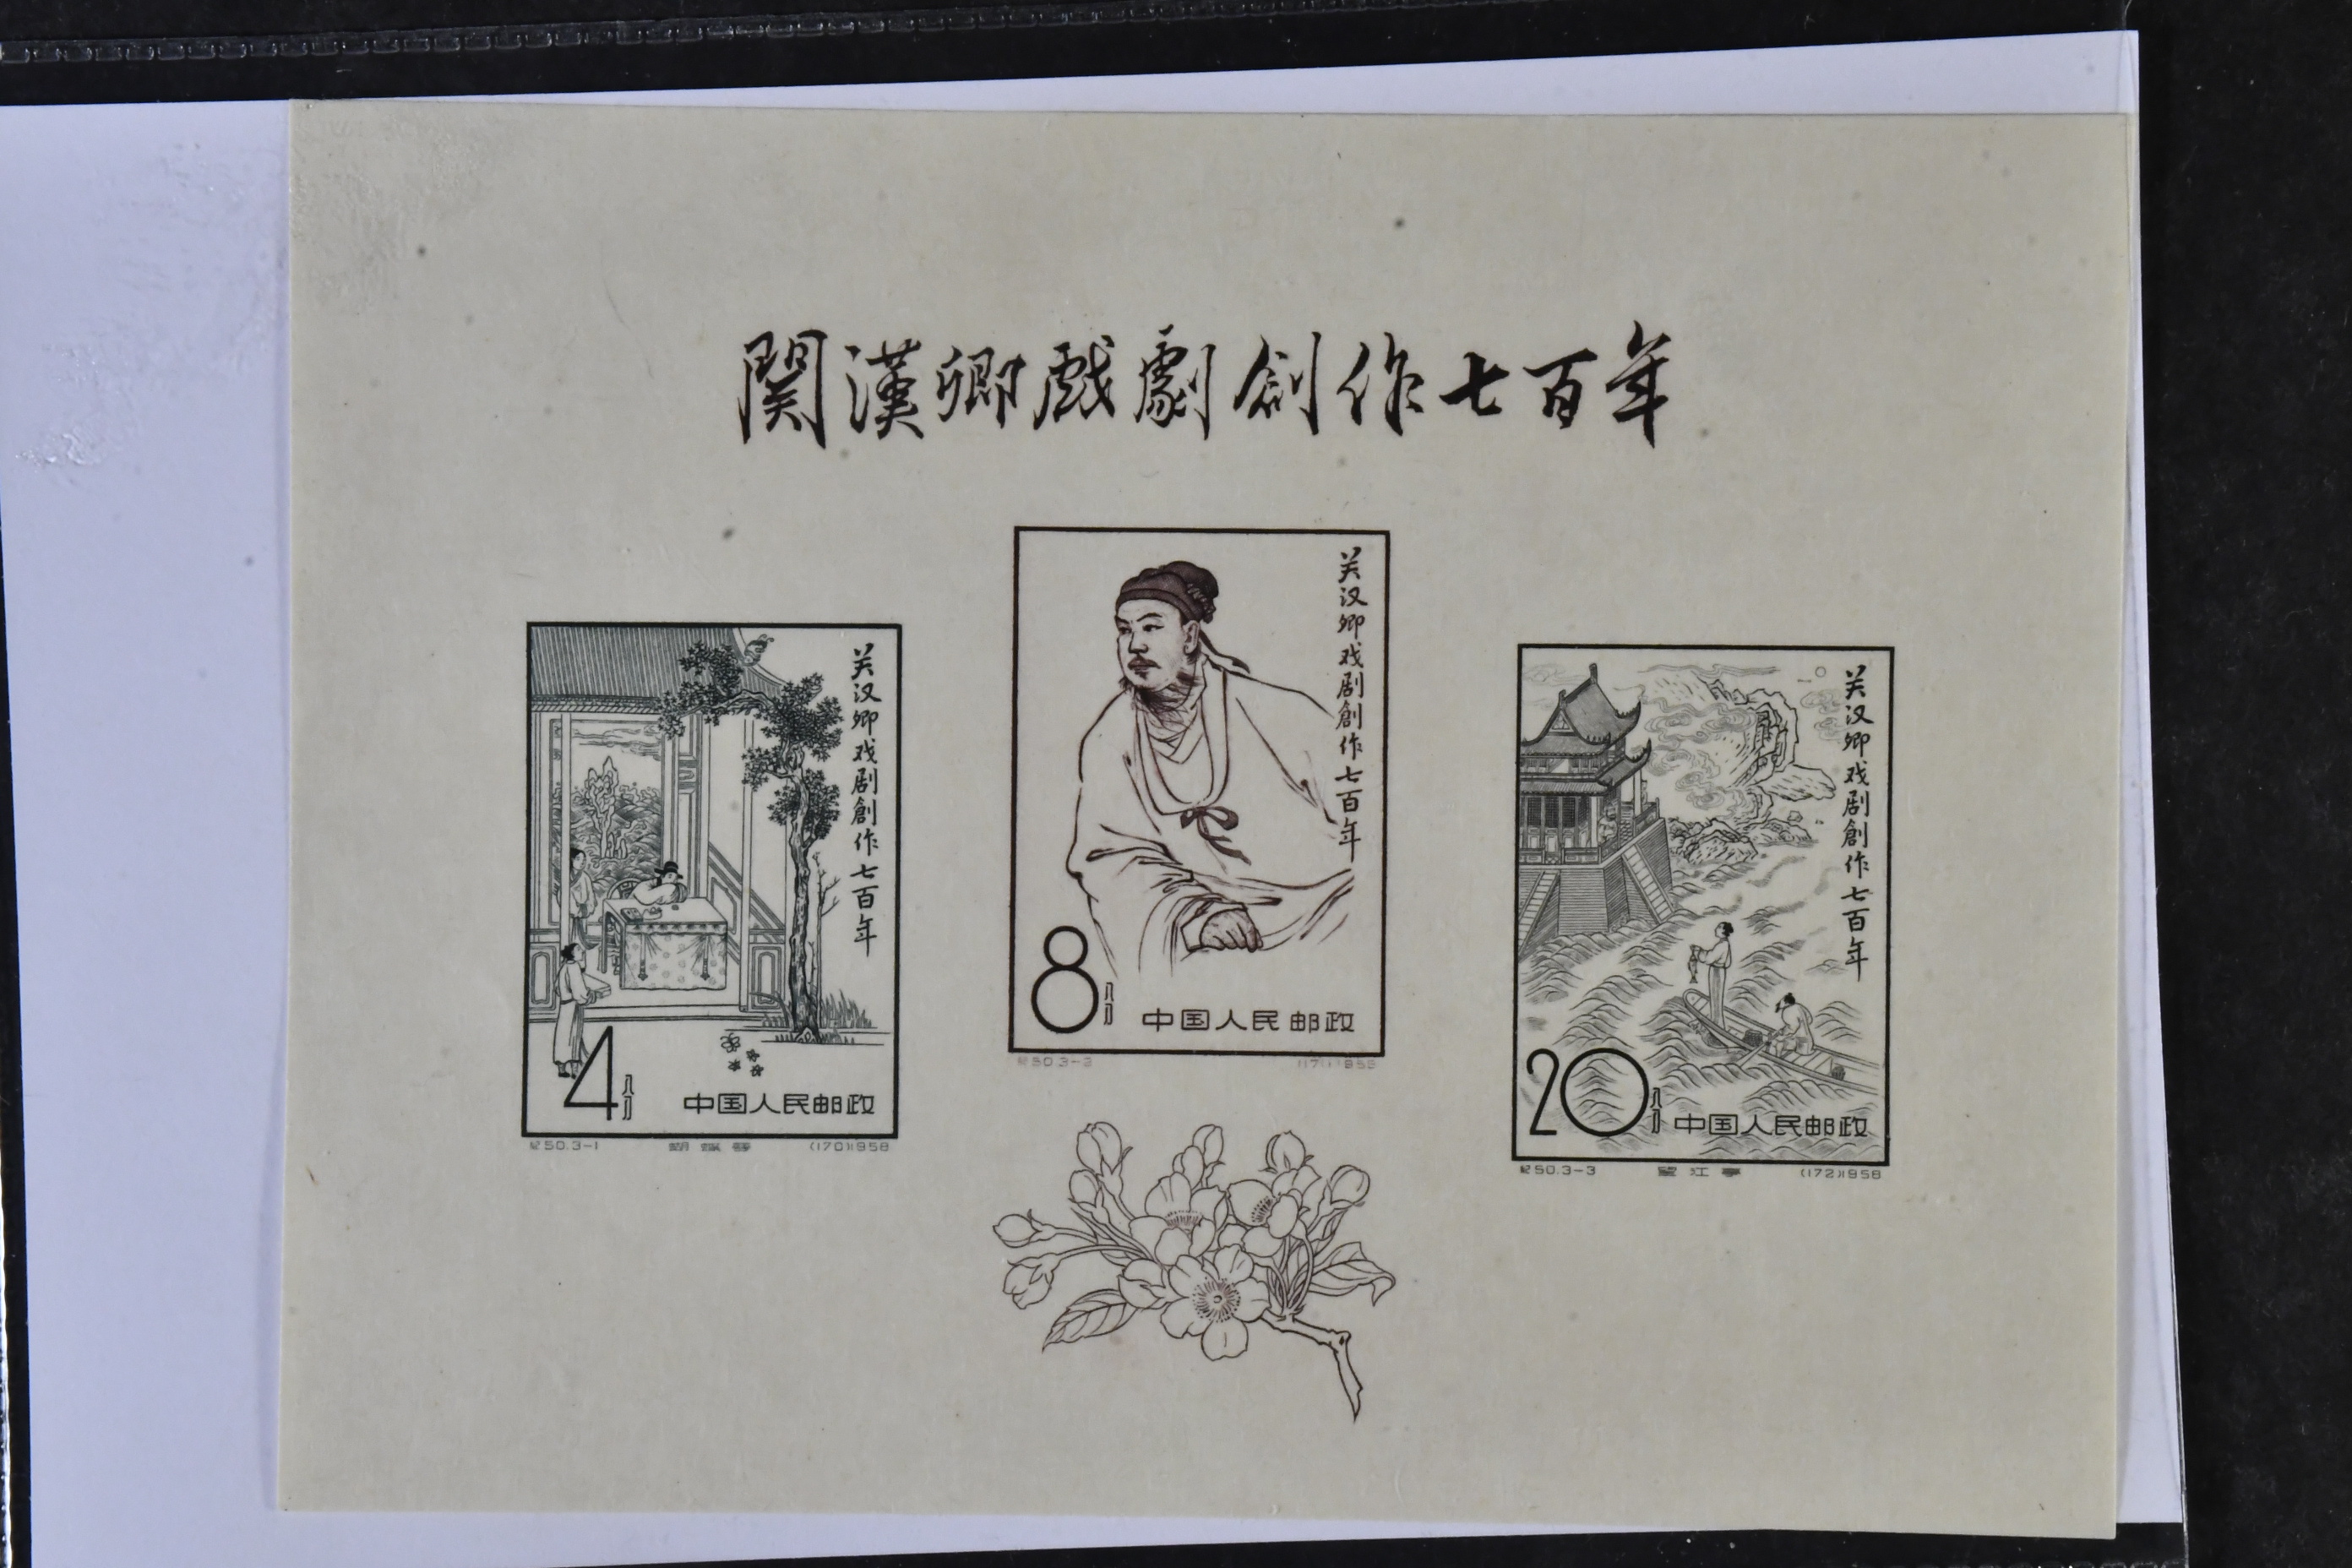 関漢卿戲劇創作七百年
关汉卿戏剧創作七百年
4分
中国人民邮政
纪50.3-1 蝴蝶梦 (170)1958
关汉卿戏剧創作七百年
8分
中国人民邮政
纪50.3-2 (171)1958
关汉卿戏剧創作七百年
20分
中国人民邮政
纪50.3-3 望江亭 (172)1958